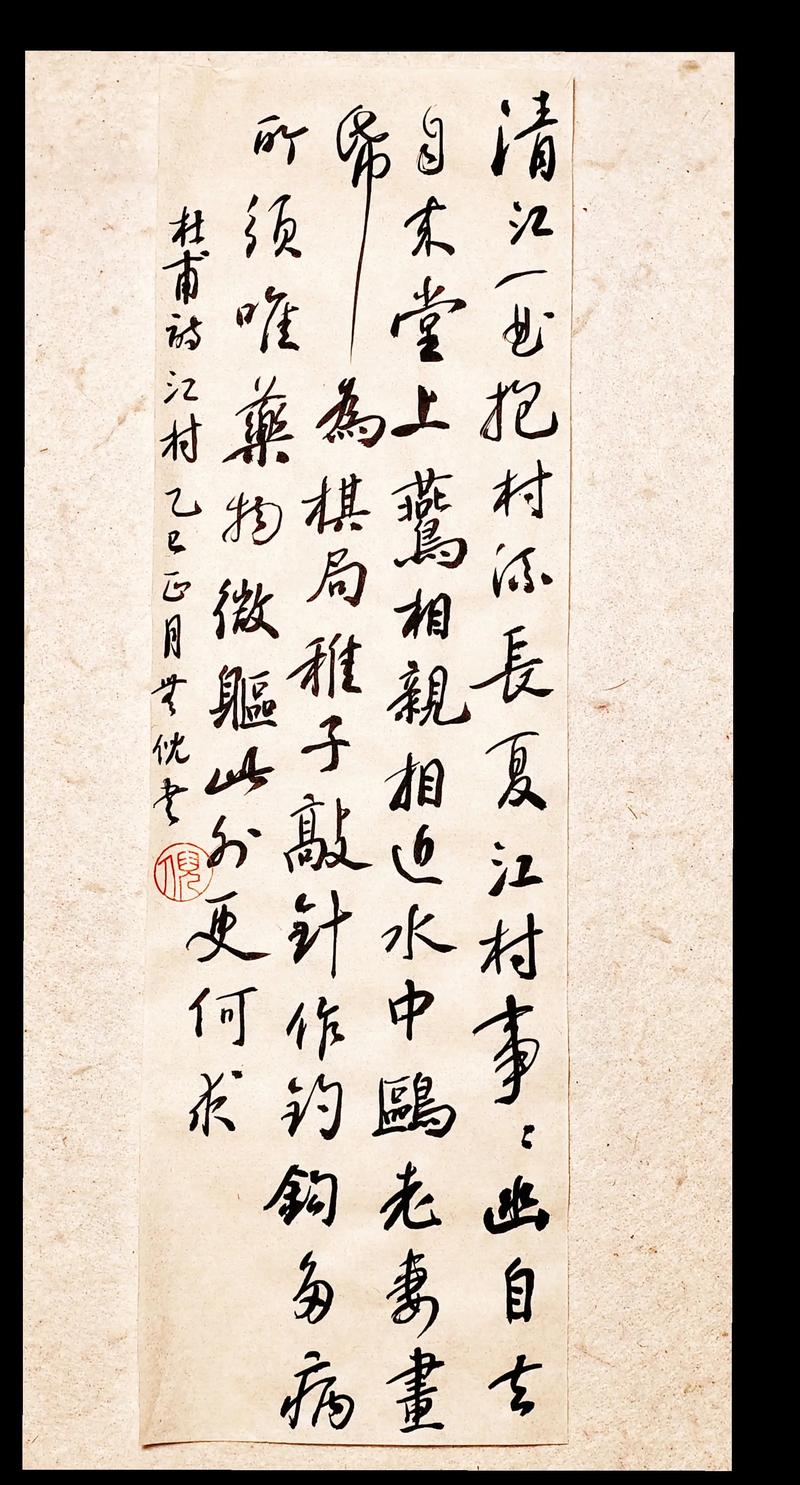 清江一曲抱村流長夏江村事〻幽自去
自來堂上燕鳥相親相近水中鷗老妻畫
帋為棋局稚子敲針作釣鉤多病
所須唯藥物微軀此外更何求
杜甫詩江村乙巳正月 倪書
倪